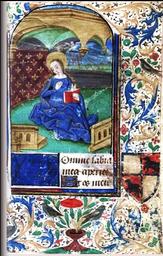 Omine labia
mea aperies
et os meu